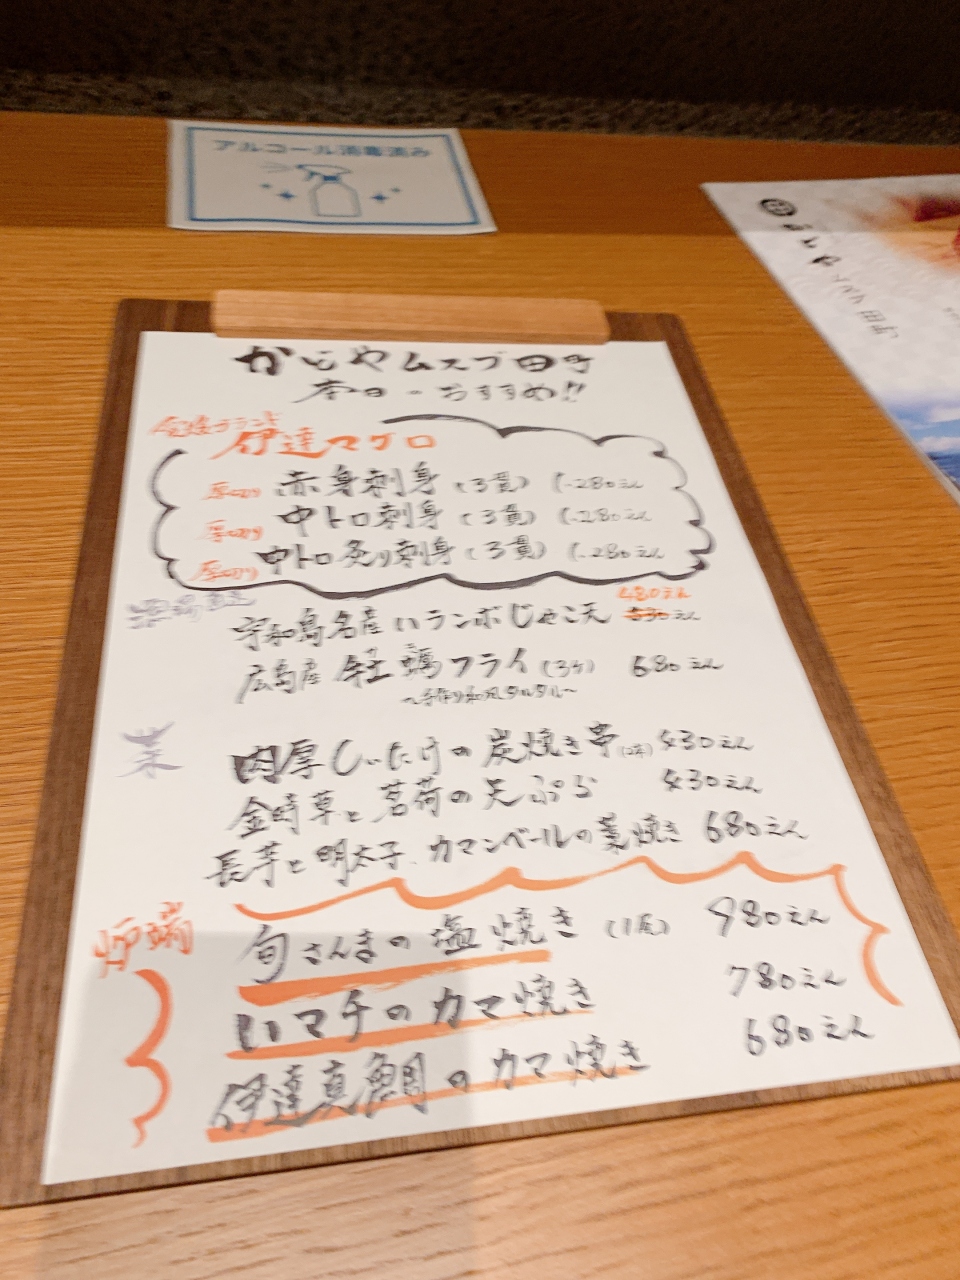 アルコール消毒済み
かどやムスブ田町
本日のおすすめ!!
伊達マグロ
厚切り 赤身刺身 (3貫) 1.280えん
厚切り 中トロ刺身 (3貫) 1.280えん
厚切り 中トロ炙り刺身 (3貫) 1.280えん
480えん
宇和島名産 ハランボじゃこ天 530えん
広島産 牡蠣フライ (3ケ) 680えん
カキ
~手作り和風タルタル~
菜
肉厚しいたけの炭焼き串(2本) 430えん
金時草と茗荷の天ぷら 430えん
長芋と明太子、カマンベールの藁焼き 680えん
炉端
旬さんまの塩焼き (1尾) 980えん
いマチのカマ焼き 780えん
伊達真鯛のカマ焼き 680えん
かどや ムスブ田町